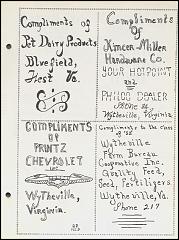 Compliments of
Pet Dairy Products
Bluefield,
West Va.
Compliments
Of
Kincer Miller
Hardware Co.
YOUR HOTPOINT
and
PHILCO DEALER
Wytheville, Virginia
COMPLIMENTS
OF
PRINTZ
CHEVROLET
INC.
Wytheville,
Virginia.
Compliments to the class
of '55
Wytheville
Farm Bureau
Cooperative Inc.
Quality Feed,
Seed, Fertilizers
Wytheville, Va.
Phone 217